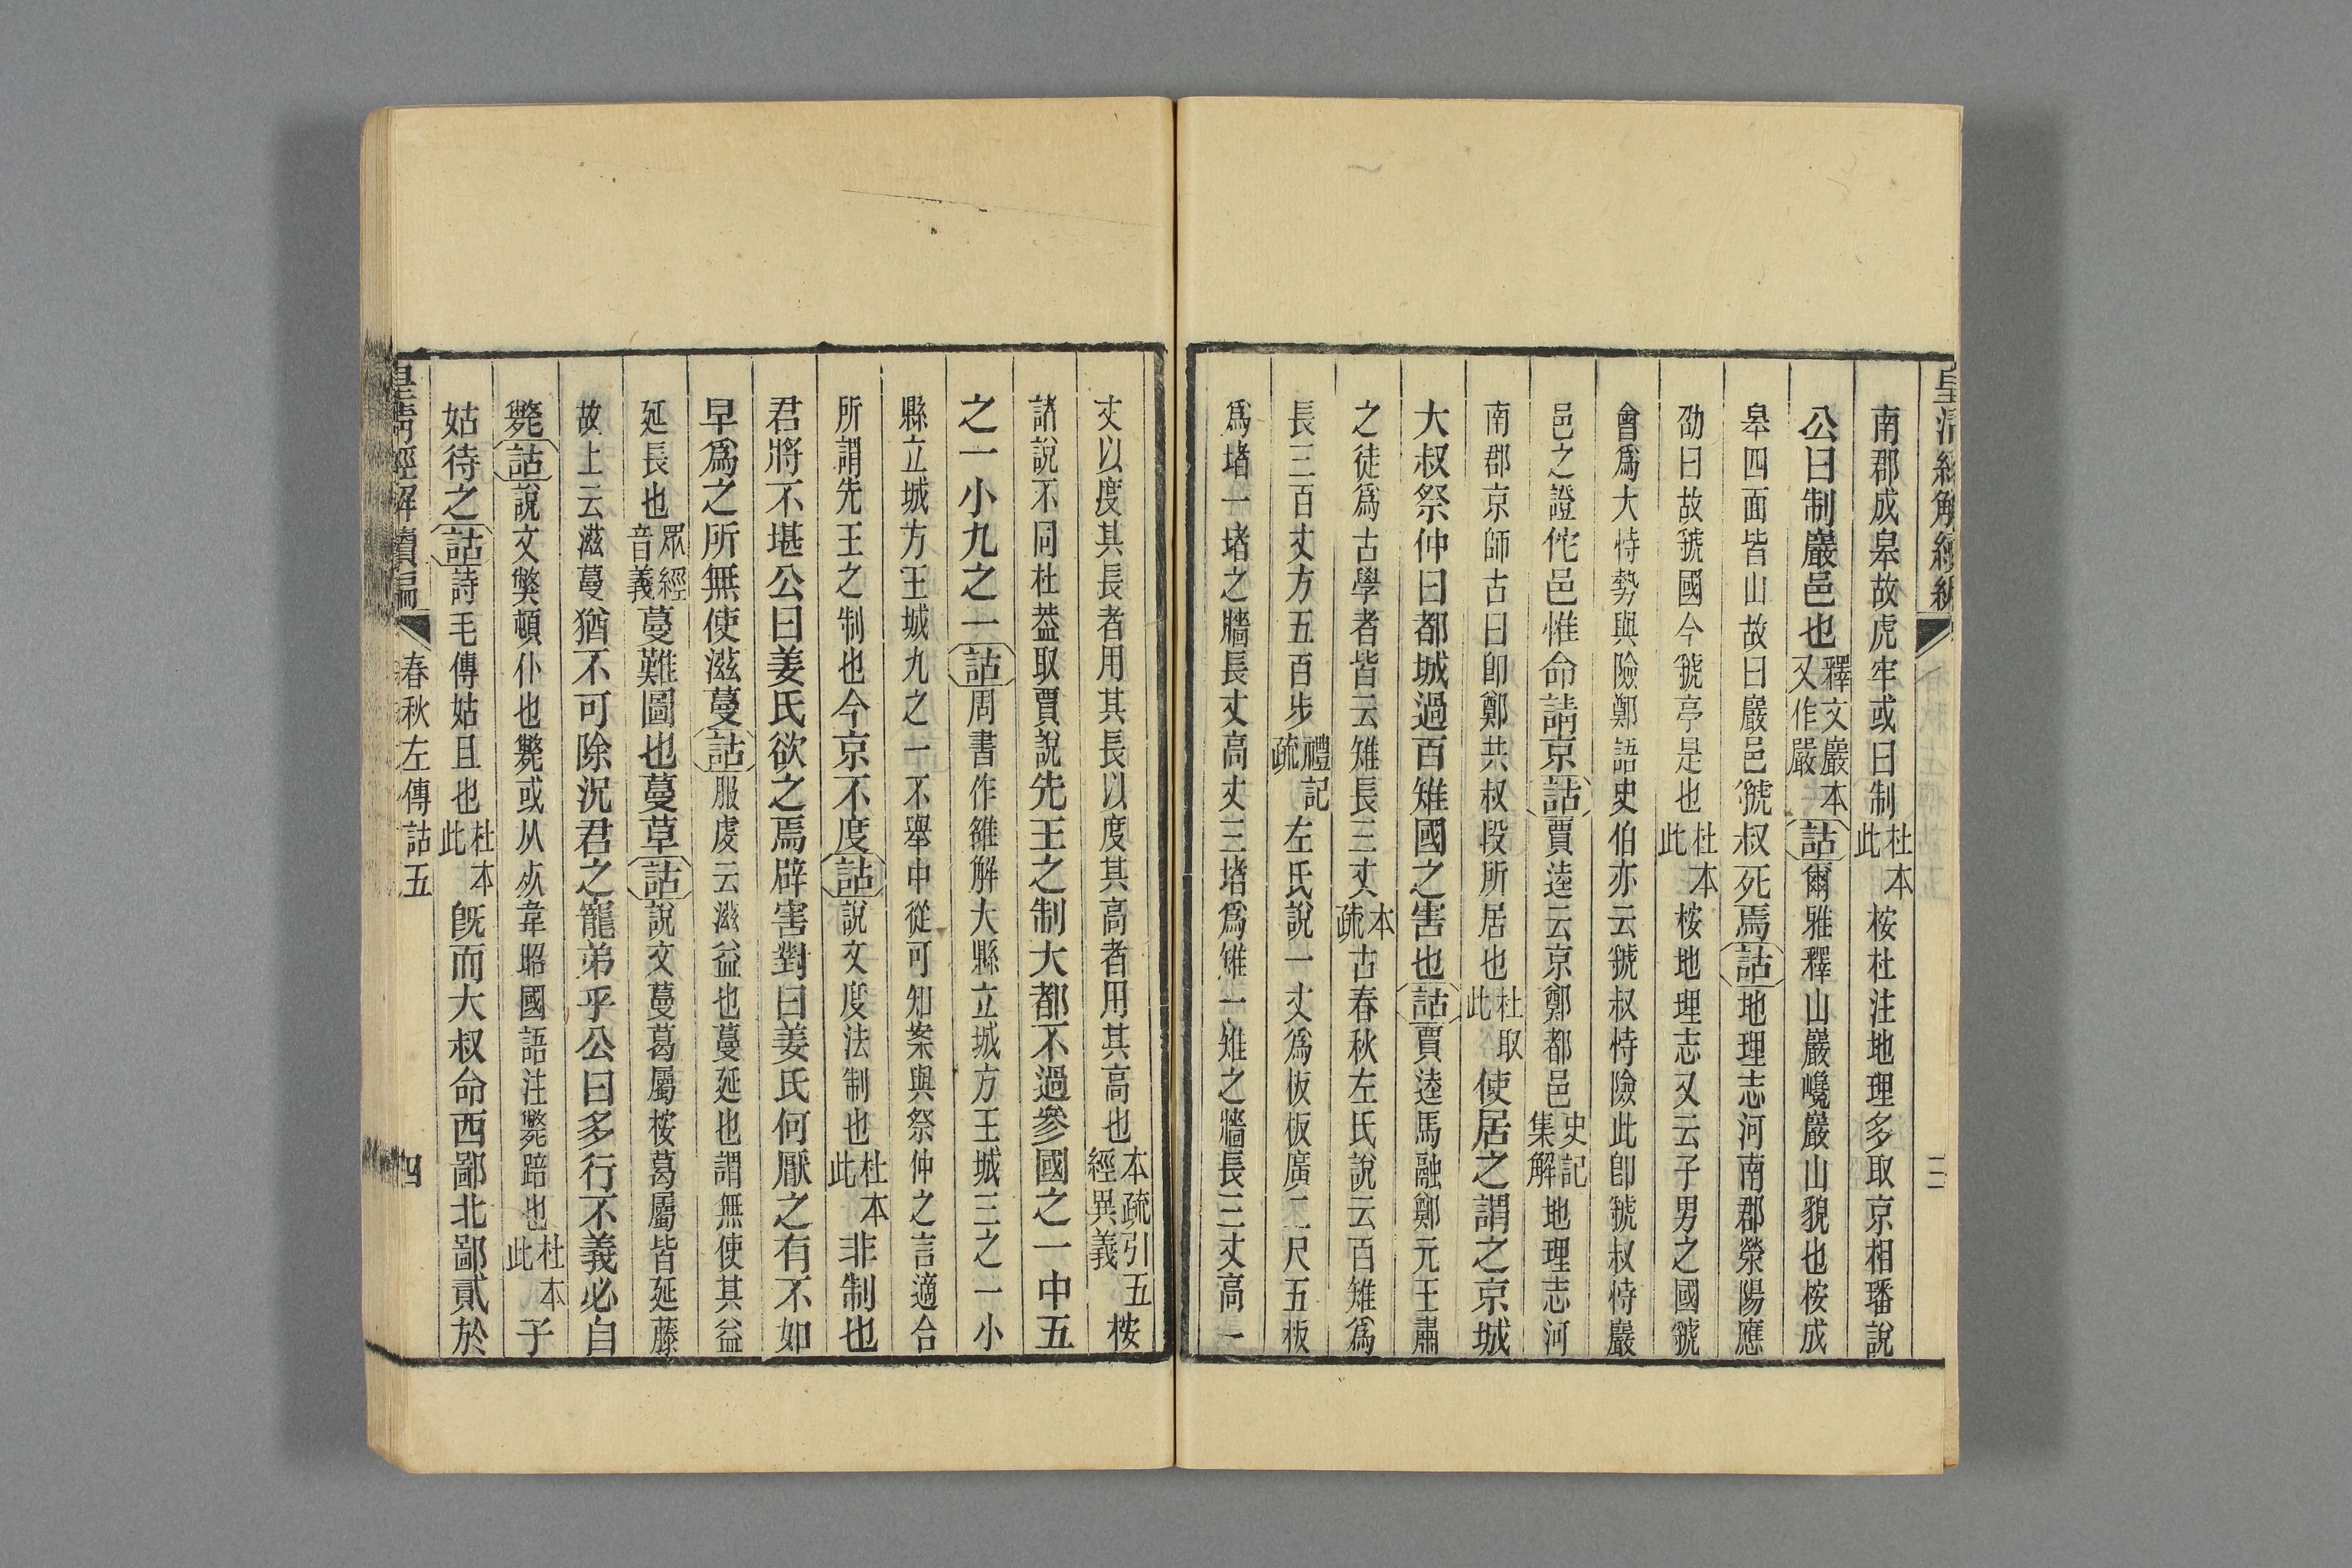 皇清經解續編
三
南郡成皋故虎牢或曰制杜本此桉杜注地理多取京相璠說
公曰制巖邑也釋文巖本又作嚴詁爾雅釋山巖巉巖山貌也桉成
皋四面皆山故曰巖邑虢叔死焉詁地理志河南郡滎陽應
劭曰故虢國今虢亭是也杜本此桉地理志又云子男之國虢
會爲大恃勢與險鄭語史伯亦云虢叔恃險此卽虢叔恃巖
邑之證佗邑惟命請京詁賈逵云京鄭都邑史記集解地理志河
南郡京師古曰卽鄭共叔段所居也杜取此使居之謂之京城
大叔祭仲曰都城過百雉國之害也詁賈逵馬融鄭元王肅
之徒爲古學者皆云雉長三丈本疏古春秋左氏說云百雉爲
長三百丈方五百步禮記疏左氏說一丈爲板板廣二尺五板
爲堵一堵之牆長丈高丈三堵爲雉一雉之牆長三丈高一
丈以度其長者用其長以度其高者用其高也本疏引五經異義桉
諸說不同杜葢取賈說先王之制大都不過參國之一中五
之一小九之一詁周書作雒解大縣立城方王城三之一小
縣立城方王城九之一不舉中從可知案與祭仲之言適合
所謂先王之制也今京不度詁說文度法制也杜本此非制也
君將不堪公曰姜氏欲之焉辟害對曰姜氏何厭之有不如
早爲之所無使滋蔓詁服虔云滋益也蔓延也謂無使其益
延長也眾經音義蔓難圖也蔓草詁說文蔓葛屬桉葛屬皆延藤
故上云滋蔓猶不可除況君之寵弟乎公曰多行不義必自
斃詁說文獘頓仆也斃或从死韋昭國語注斃踣也杜本此子
姑待之詁詩毛傳姑且也杜本此旣而大叔命西鄙北鄙貳於
皇清經解續編
春秋左傳詁五
四